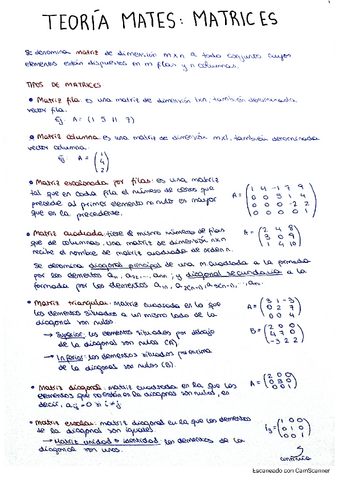 TEORÍA MATES: MATRICES
Se denomina matriz de dimensión m x n a todo conjunto cuyos
elementos están dispuestos en m filas y n columnas.
TIPOS DE MATRICES
• Matriz fila: es una matriz de dimensión 1xn, también denominada
vector fila.
Ej: A = (1 5 11 7)
• Matriz columna es una matriz de dimensión mx1, también denominada
vector columna.
Ej: A = (1
4
2)
• Matriz escalonada por filas: es una matriz
tal que en cada fila el número de ceros que
precede al primer elemento no nulo es mayor
que en la precedente.
A =
1 4 -1 7 9
0 0 5 1 4
0 0 0 -2 2
0 0 0 0 1
• Matriz cuadrada: tiene el mismo número de filas
que de columnas. Una matriz de dimensión nxn
recibe el nombre de matriz cuadrada de orden n.
A =
2 4 8
3 0 9
1 4 10
Se denomina diagonal principal de una m. cuadrada a la formada
por los elementos a11, a22, ... ann; y diagonal secundaria a la
formada por los elementos
• Matriz triangular: matriz cuadrada en la que
los elementos situados a un mismo lado de la
diagonal son nulos
A =
3 1 -3
0 2 7
0 0 4
→ Superior: los elementos situados por debajo
de la diagonal son nulos (A)
→ Inferior: los elementos situados por encima
de la diagonal son nulos (B).
B =
2 0 0
4 3 0
-3 2 2
• Matriz diagonal: matriz cuadrada en la que los
elementos que no están en la diagonal son nulos, es
decir. aij = 0 si i ≠ j
A =
2 0 0
0 3 0
0 0 1
• Matriz escalar: matriz diagonal en la que los elementos
de la diagonal son iguales
→ Matriz unidad o identidad: los elementos de la
diagonal son unos.
I3 =
1 0 0
0 1 0
0 0 1
Escaneado con CamScanner